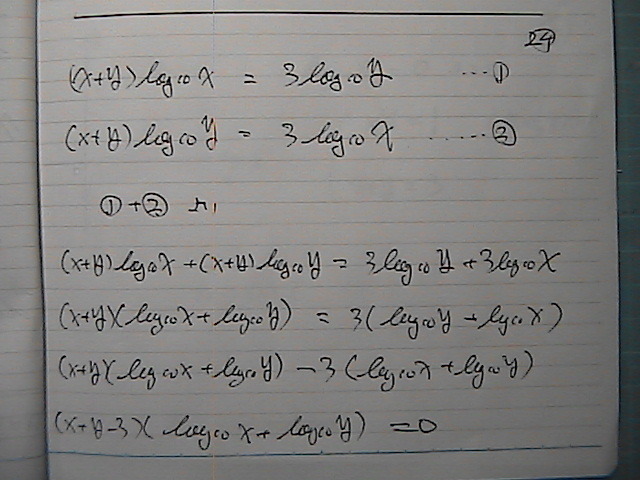 24
(x+y)log₁₀x = 3log₁₀y ...①
(x+y)log₁₀y = 3log₁₀x ......②
①+②より
(x+y)log₁₀x+(x+y)log₁₀y = 3log₁₀y+3log₁₀x
(x+y)(log₁₀x+log₁₀y) = 3(log₁₀y+log₁₀x)
(x+y)(log₁₀x+log₁₀y)-3(log₁₀x+log₁₀y)
(x+y-3)(log₁₀x+log₁₀y)=0